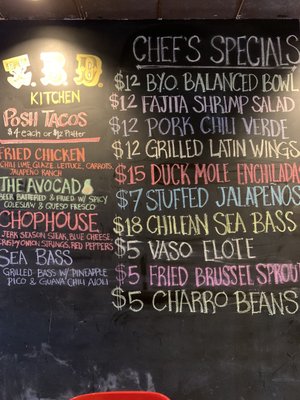 T.B.D.
KITCHEN
POSH TACOS
$4 each or $12 Platter
FRIED CHICKEN
CHILI LIME GLAZE, LETTUCE, CARROTS,
JALAPEÑO RANCH
THE AVOCADO
BEER BATTERED & FRIED W/ SPICY
COLESLAW & QUESO FRESCO
CHOPHOUSE
JERK SEASON STEAK, BLUE CHEESE,
CRISPY ONION STRINGS, RED PEPPERS
SEA BASS
GRILLED BASS W/ PINEAPPLE
PICO & GUAVA CHILI AIOLI
CHEF'S SPECIALS
$12 B.Y.O. BALANCED BOWL
$12 FAJITA SHRIMP SALAD
$12 PORK CHILI VERDE
$12 GRILLED LATIN WINGS
$15 DUCK MOLE ENCHILADA
$7 STUFFED JALAPEÑOS
$18 CHILEAN SEA BASS
$5 VASO ELOTE
$5 FRIED BRUSSEL SPROUT
$5 CHARRO BEANS